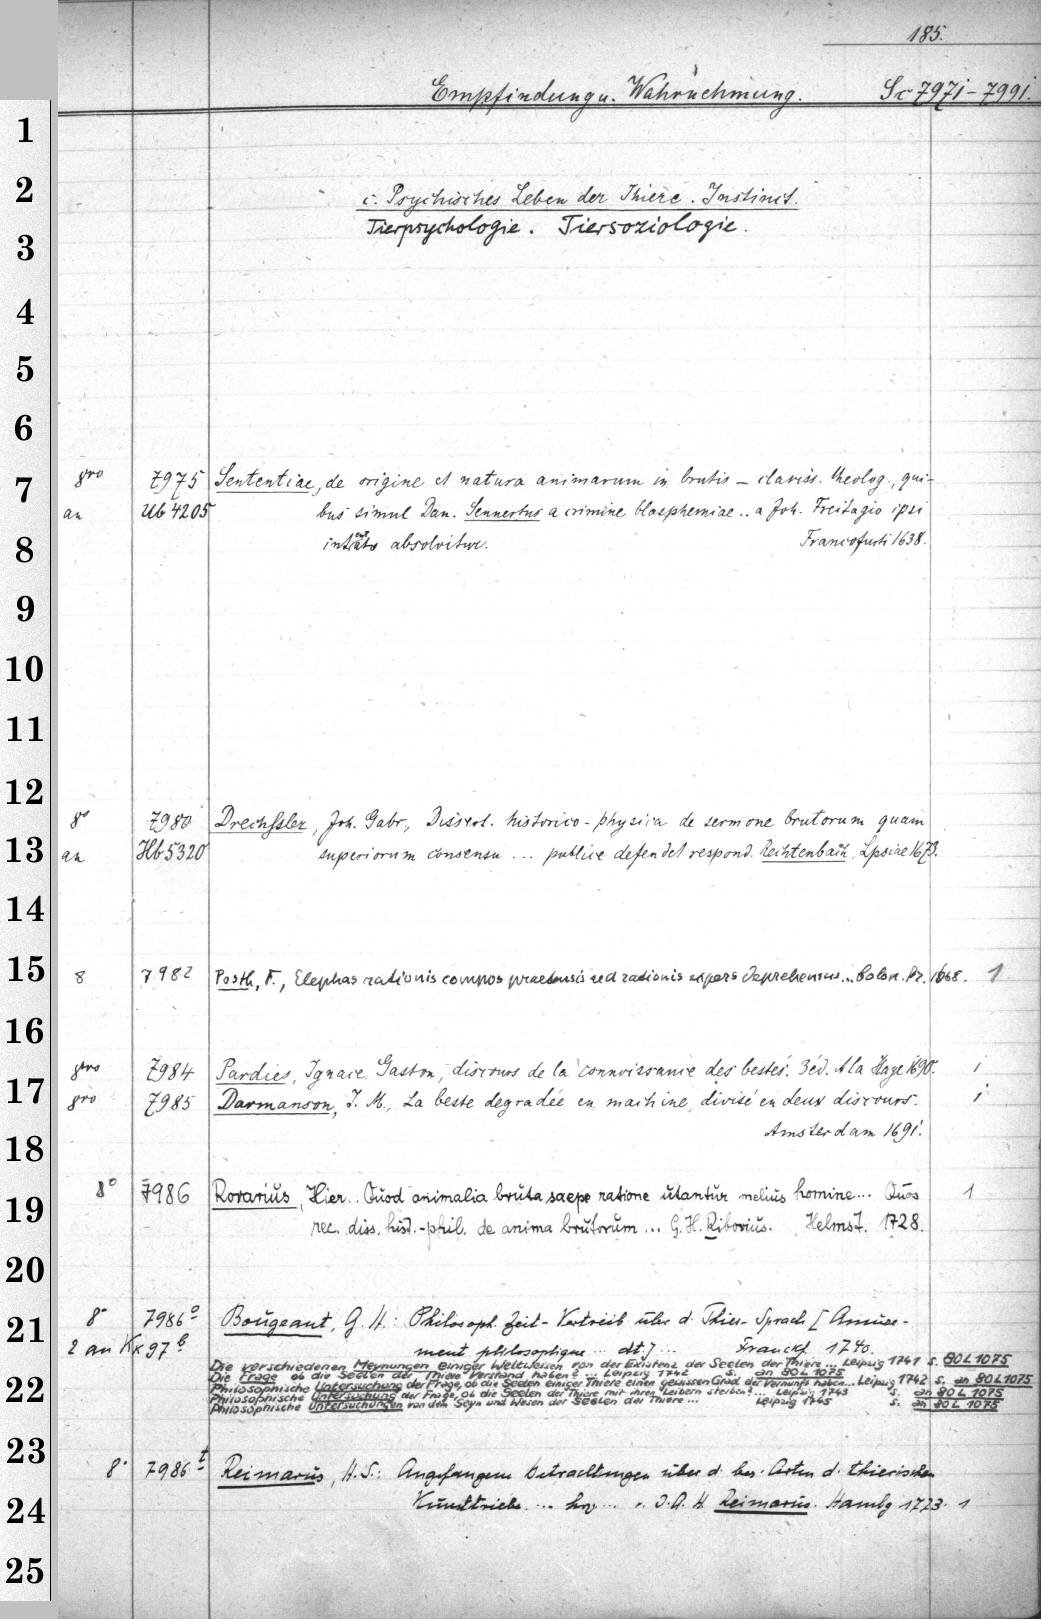 185.
Empfindung u. Wahrnehmung. Sc 7971-7991.
1
2 c. Psychisches Leben der Thiere. Instinct.
3 Tierpsychologie. Tiersoziologie.
4
5
6
7 gr 8o 7975 Sententiae, de origine et natura animarum in brutis – clariss. theolog., qui-
an Ub 4205 bus simul Dan. Sennertus a crimine blasphemiae .. a Joh. Freitagio ipsi
8 absolvitur. Francofurti 1638.
9
10
11
12
8o 7980 Drechssler, Joh. Gabr., Dissert. historico-physica de sermone brutorum quam
13 an Hb 5320 superiorum consensu ... publice defendet respond. Rechtenbach. Lpsiae 1673.
14
15 8 7982 Posth, F., Elephas rationis compos praetensus sed rationis expers deprehensus... Colon. Br. 1668. 1
16
7984 Pardies, Ignace Gaston, discours de la connoissance des bestes. 3éd. A la Haye 1690. 1
17 7985 Darmanson, J. M., La beste degradée en machine, divisé en deux discours. 1
18 Amsterdam 1691.
8o 7986 Rorarius, Hier.. Quod animalia bruta saepe ratione utantur melius homine... Quos 1
19 rec. diss. hist.-phil. de anima brutorum ... G. H. Ribovius. Helmst. 1728.
20
21 8° 7986a Bougeant, G. H.: Philosoph. Zeit-Vertreib über d. Thier-Sprach [Amuse-
2 an Kk 97b ment philosophique ... dt.] ... Franckf. 1740.
Die verschiedenen Meynungen einiger Weltweisen von der Existenz der Seelen der Thiere... Leipzig 1741 s. 80 L 1075
Die Frage ob die Seelen der Thiere Verstand haben? ... Leipzig 1742 s. an 80 L 1075
22 Philosophische Untersuchung der Frage, ob die Seelen einiger Thiere einen gewissen Grad der Vernunft haben... Leipzig 1742 s. an 80 L 1075
Philosophische Untersuchung der Frage, ob die Seelen der Thiere mit ihren Leibern sterben? ... Leipzig 1743 s. an 80 L 1075
Philosophische Untersuchungen von dem Seyn und Wesen der Seelen der Thiere ... Leipzig 1745 s. an 80 L 1075
23 8° 7986t Reimarus, H. S.: Angefangene Betrachtungen über d. bes. Arten d. thierischen
24 Kunsttriebe. ... hrsg ... v. J. A. H. Reimarus. Hambg 1773. 1
25